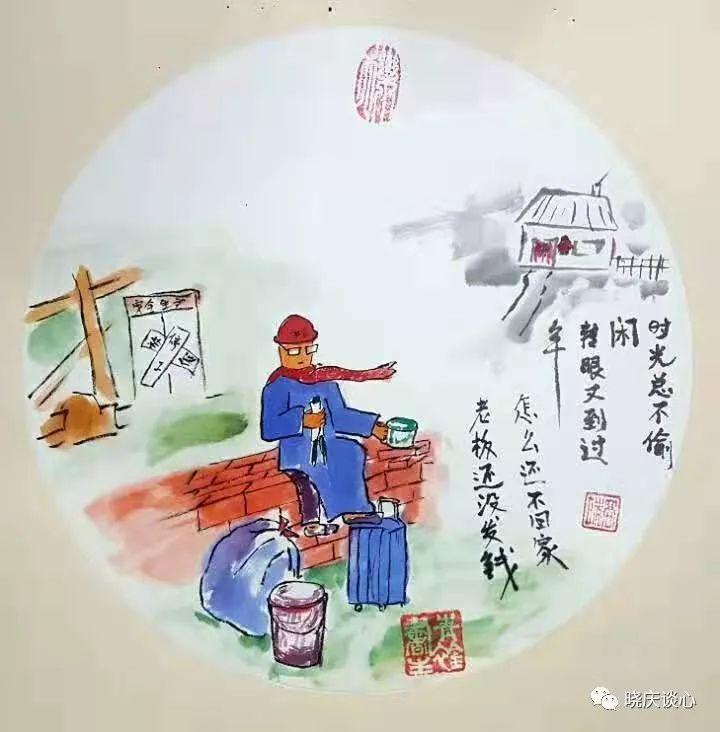 安全生产
时光总不偷
闲
转眼又到过
年
怎么还不回家
老板还没发钱
晓庆谈心